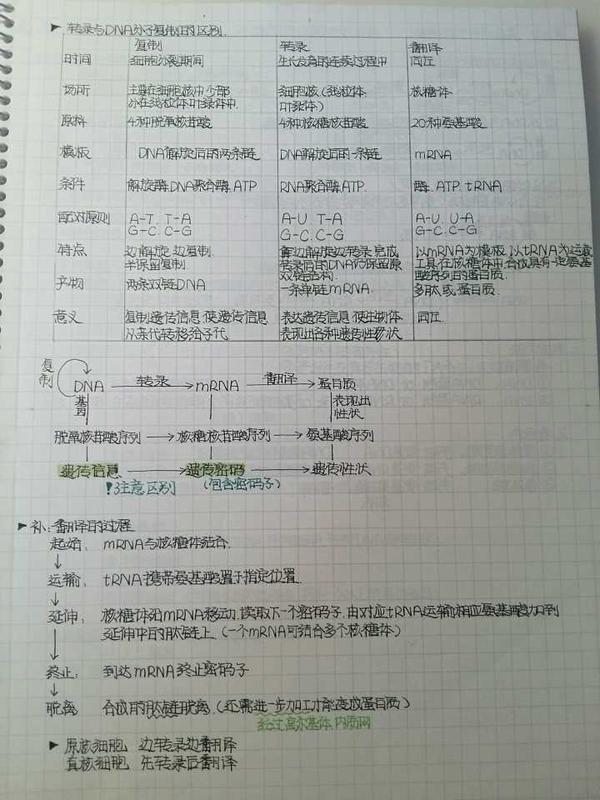 ▶ 转录与DNA分子复制的区别.
复制 转录 翻译
时间 细胞分裂期间 生长发育的连续过程中 同左
场所 主要在细胞核中,少部分在线粒体叶绿体中. 细胞核(线粒体叶绿体) 核糖体
原料 4种脱氧核苷酸 4种核糖核苷酸 20种氨基酸
模板 DNA解旋后的两条链 DNA解旋后的一条链 mRNA
条件 解旋酶.DNA聚合酶.ATP RNA聚合酶.ATP. 酶. ATP. tRNA
配对原则 A-T. T-A A-U. T-A A-U. U-A
G-C. C-G G-C. C-G G-C. C-G
特点 边解旋.边复制. 半保留复制 边解旋边转录.完成转录后的DNA仍保留原双链结构. 以mRNA为模板.以tRNA为运载工具.在核糖体中.合成具有一定氨基酸序列的蛋白质.
产物 两条双链DNA 一条单链mRNA. 多肽或蛋白质.
意义 复制遗传信息.使遗传信息从亲代转移给子代 表达遗传信息.使生物体表现出各种遗传性状 同左.
复制
DNA 转录→ mRNA 翻译→ 蛋白质
基因 表现出性状
脱氧核苷酸序列 → 核糖核苷酸序列 → 氨基酸序列
遗传信息 → 遗传密码 → 遗传性状
!注意区别 (包含密码子)
▶ 补:翻译的过程
起始: mRNA与核糖体结合.
↓
运输: tRNA携带氨基酸置于指定位置.
↓
延伸: 核糖体沿mRNA移动,读取下一个密码子,由对应tRNA运输相应氨基酸加到
延伸中的肽链上.(一个mRNA可结合多个核糖体)
↓
终止: 到达mRNA终止密码子
↓
脱离 合成的肽链脱离.(还需进一步加工才能变成蛋白质)
经过高尔基体.内质网
▶ 原核细胞 边转录边翻译
真核细胞 先转录后翻译